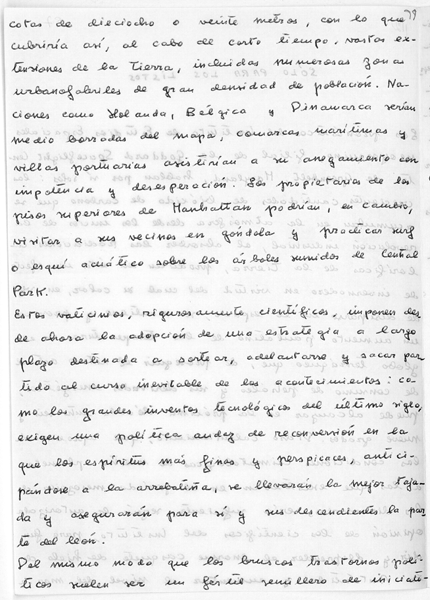 79
cotas de dieciocho o veinte metros, con lo que
cubriría así, al cabo de corto tiempo, vastas ex-
tensiones de la Tierra, incluidas numerosas zonas
urbanofabriles de gran densidad de población. Na-
ciones como Holanda, Bélgica y Dinamarca serían
medio borradas del mapa, comarcas marítimas y
villas portuarias asistirían a su anegamiento con
impotencia y desesperación. Los propietarios de los
pisos superiores de Manhattan podrían, en cambio,
visitar a sus vecinos en góndola y practicar surf
o esquí acuático sobre los árboles sumidos de Central
Park.
Estos vaticinios, rigurosamente científicos, imponen des-
de ahora la adopción de una estrategia a largo
plazo destinada a sortear, adelantarse y sacar par-
tido al curso inevitable de los acontecimientos: co-
mo los grandes inventos tecnológicos del último siglo,
exigen una política audaz de reconversión en la
que los espíritus más finos y perspicaces, antici-
pándose a la arrebatiña, se llevarán la mejor taja-
da y asegurarán para sí y sus descendientes la par-
te del león.
Del mismo modo que los bruscos trastornos polí-
ticos suelen ser un fértil semillero de iniciati-